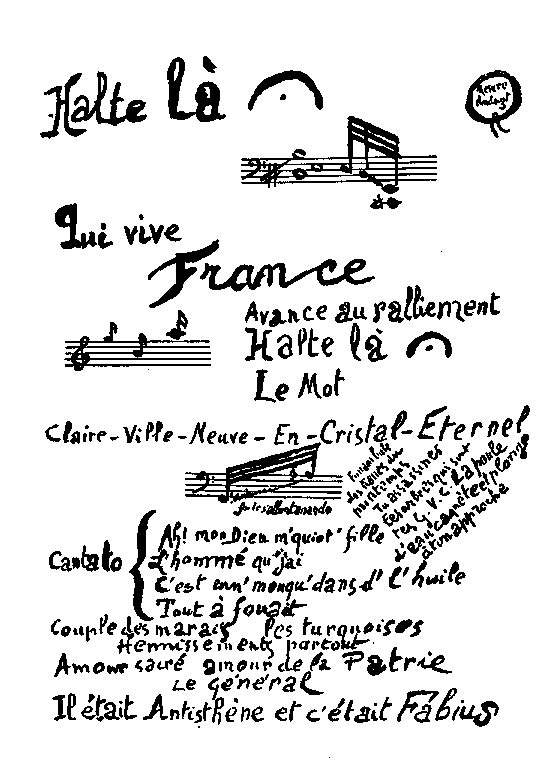 Halte là
Qui vive
France
Avance au ralliement
Halte là
Le Mot
Claire-Ville-Neuve-En-Cristal-Eternel
des
printemps
Tu assassines
d'eau
à ton approche
Cantato
Ah! mon Dieu m'quiot' fille
L'hommé qu'j'ai
C'est eun' mouqu' dans d' l'huile
Tout à fouait
Couple des marais les turquoises
Hennissements partout
Amour sacré amour de la Patrie
Le général
Il était Antisthène et c'était Fabius